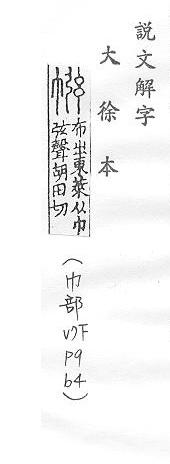 説文解字
大徐本
布出東萊从巾
弦聲胡田切
(巾部 V7下 p9 b4)